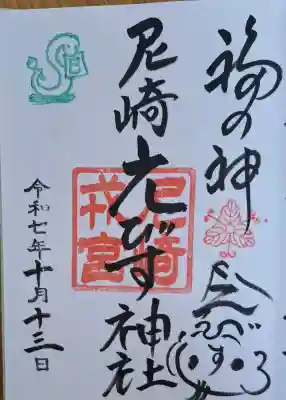 福の神
えびす
尼崎えびす神社
尼崎
戎宮
令和七年十月十三日